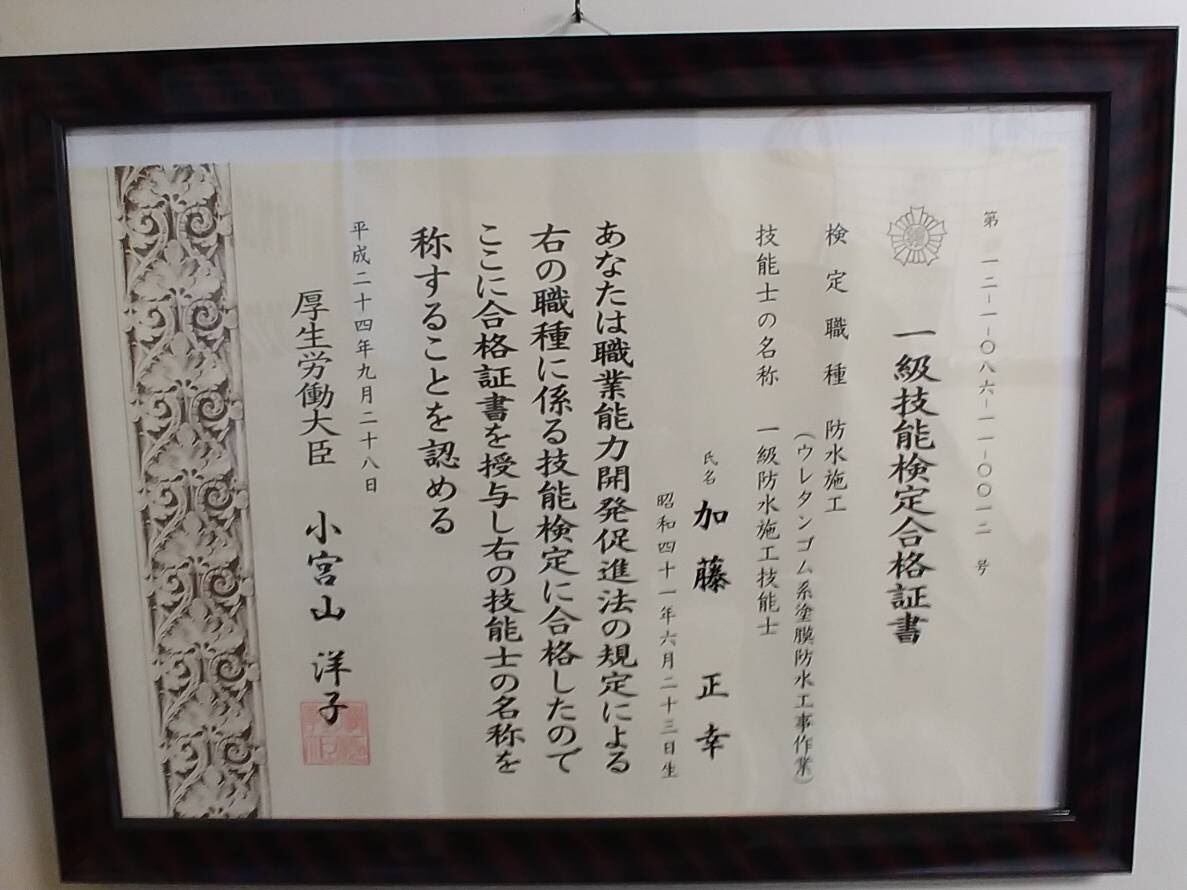 第一二-一-〇八六-一一-〇〇一二号
一級技能検定合格証書
検定職種 防水施工
(ウレタンゴム系塗膜防水工事作業)
技能士の名称 一級防水施工技能士
氏名 加藤 正幸
昭和四十一年六月二十三日生
あなたは職業能力開発促進法の規定による
右の職種に係る技能検定に合格したので
ここに合格証書を授与し右の技能士の名称を
称することを認める
平成二十四年九月二十八日
厚生労働大臣 小宮山 洋子